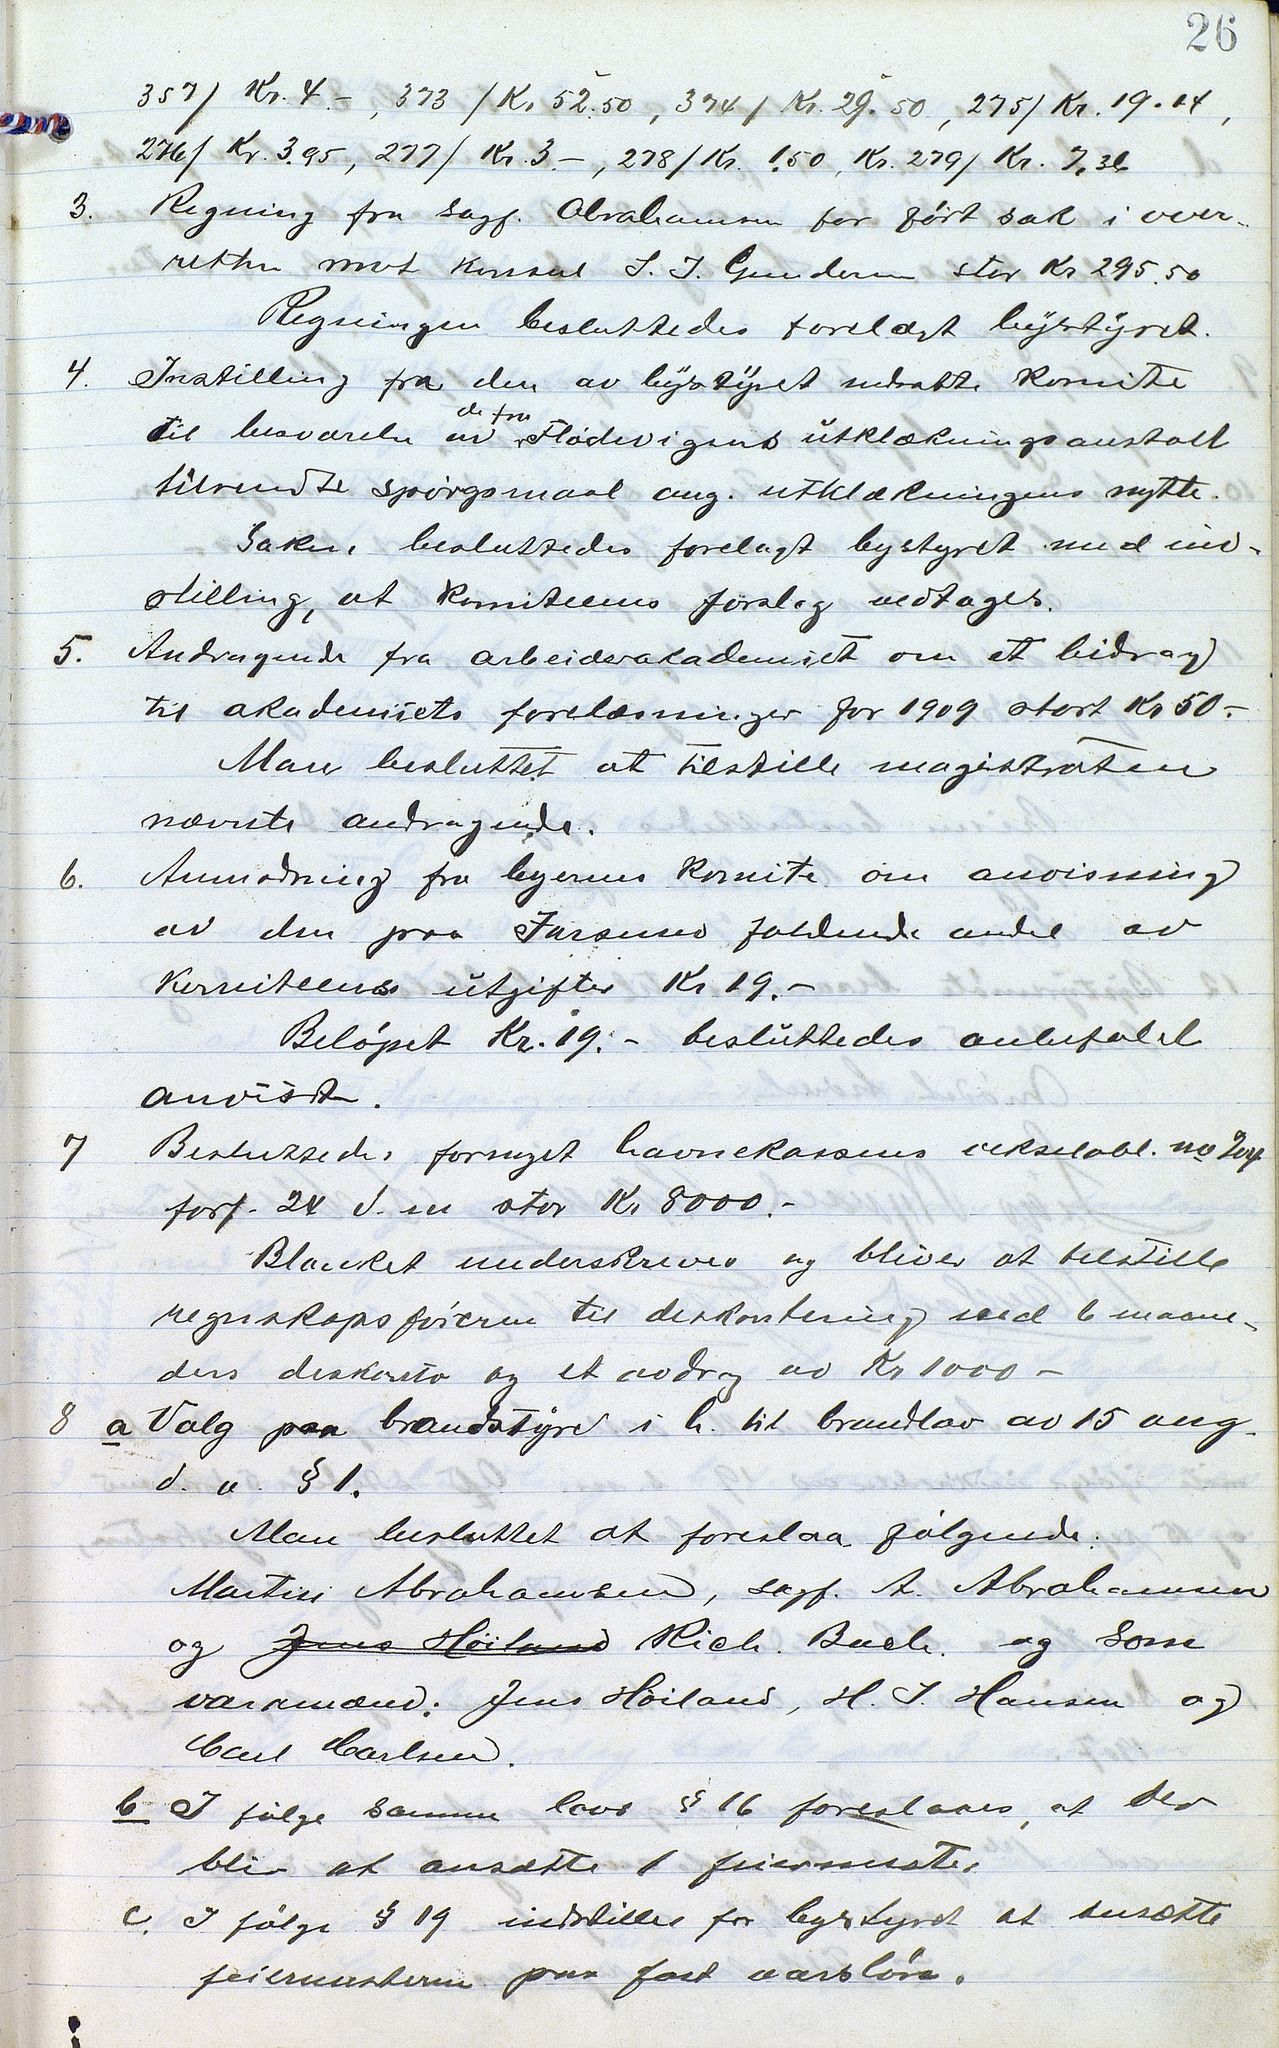 26
357/ Kr. 4.-, 373 / Kr 52.50, 374/ Kr. 29.50, 275/ Kr. 19.14,
276/ Kr. 3.95, 277/ Kr. 3.-, 278/ Kr. 1.50, Kr. 279/ Kr. 7.36
3. Regning fra sagf. Abrahamsen for ført sak i over-
retten mot konsul S. T. Gundersen stor Kr 295.50
Regningen besluttedes forelagt bystyret.
4. Instilling fra den av bystyret nedsatte komite
til besvarelse av de fra Flødevigens utklækningsanstalt
tilsendte spørgsmaal ang. utklækningens nytte.
Saken besluttedes forelagt bystyret med ind-
stilling, at komiteens forslag vedtages.
5. Andragende fra arbeiderakademiet om et bidrag
til akademiets forelæsninger for 1909 stort Kr 50.-
Man besluttet at tilstille magistraten
nævnte andragende.
6. Anmodning fra byernes komite om anvisning
av den paa Farsund faldende andel av
komiteens utgifter Kr 19.-
Beløpet Kr. 19.- besluttedes anbefalet
anvist.
7 Besluttedes fornyet havnekassens vekselobl. no
forf. 24 d. m stor Kr 8000.-
Blanket underskreves og bliver at tilstille
regnskapsføreren til diskontering med 6 maane-
ders diskonto og et avdrag av Kr 1000 -
8 a Valg paa brandstyre i h. til brandlov av 15 aug.
d. a. § 1.
Man besluttet at foreslaa følgende:
Martin Abrahamsen, sagf. A. Abrahamsen
og Jens Høiland Rich. Buch. og som
varamænd: Jens Høiland, H. J. Hansen og
Carl Carlsen.
b I følge samme lovs § 16 foreslaaes, at der
blir at ansætte 1 feiermester.
c. I følge § 19 indstilles for bystyret at ansætte
feiermesteren paa fast aarsløn.